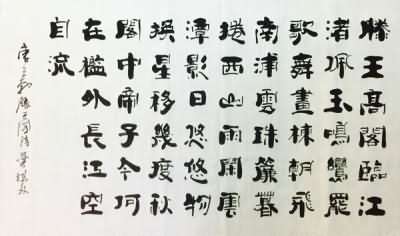 滕王高閣臨江
渚佩玉鳴鸞罷
歌舞畫棟朝飛
南浦雲珠簾暮
捲西山雨閑雲
潭影日悠悠物
換星移幾度秋
閣中帝子今何
在檻外長江空
自流
唐王勃滕王閣詩